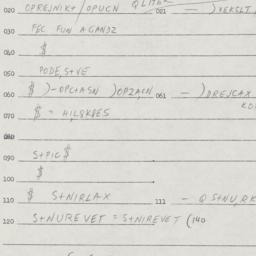 020 OPREJNIK+/OPUCN 021 — )VEKSLT
030 FEC FUN AGANDZ
040 $
050 PODE,S+VE
060 $ )-OPCHASN )OPZACN 061 — )DREJCAX
070 $ - HILSKBES
080
090 S+PIC$
100 $
110 $ S+NIRLAX 111 - QS+NU,RK
120 S+NUREVET = S+NIREVET (140